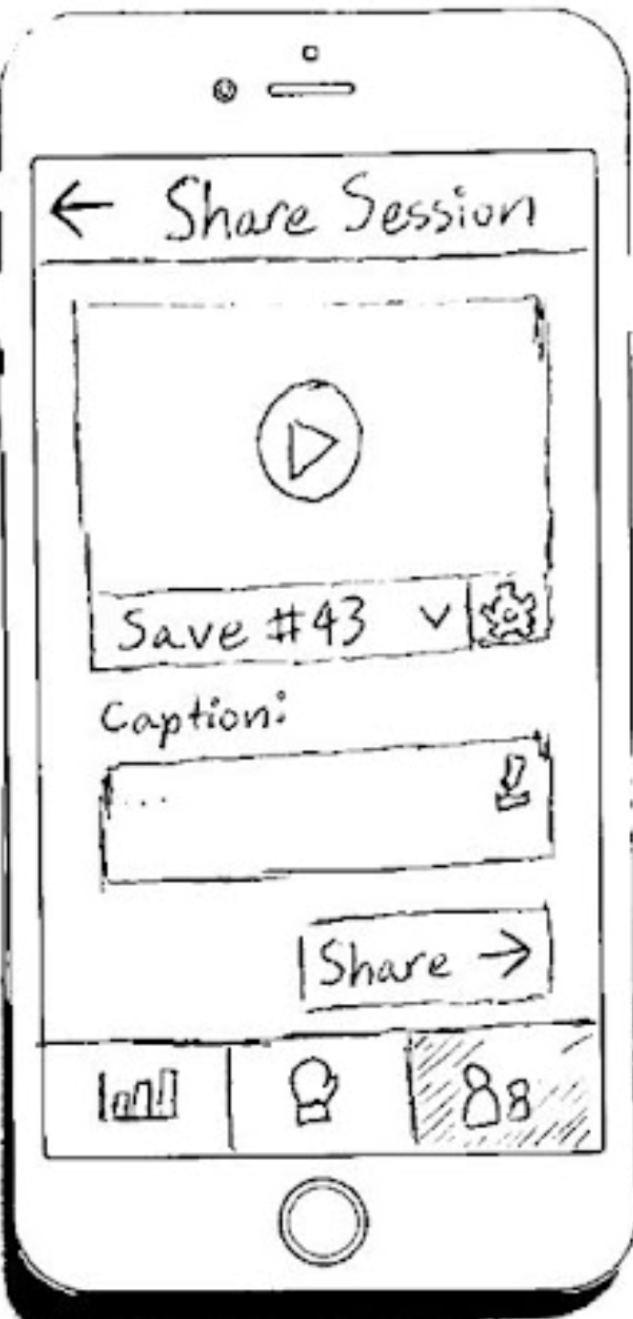 ← Share Session
Save #43
Caption:
...
Share →